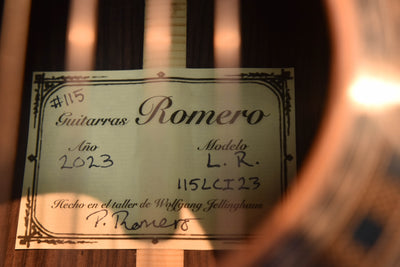 #115
Guitarras Romero
Año Modelo
2023 L. R.
115LCI23
Hecho en el taller de Wolfgang Jellinghaus
P. Romero